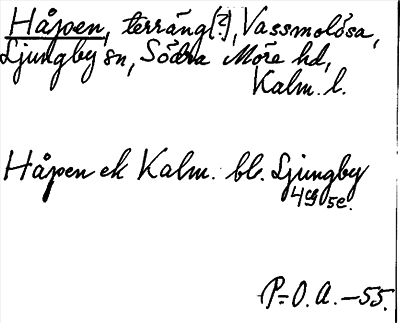 Håpen, terräng(?), Vassmolösa,
Ljungby sn, Södra Möre hd,
Kalm. l.
Håpen ek Kalm. bl. Ljungby
4 cg se.
P-O. A. -55.